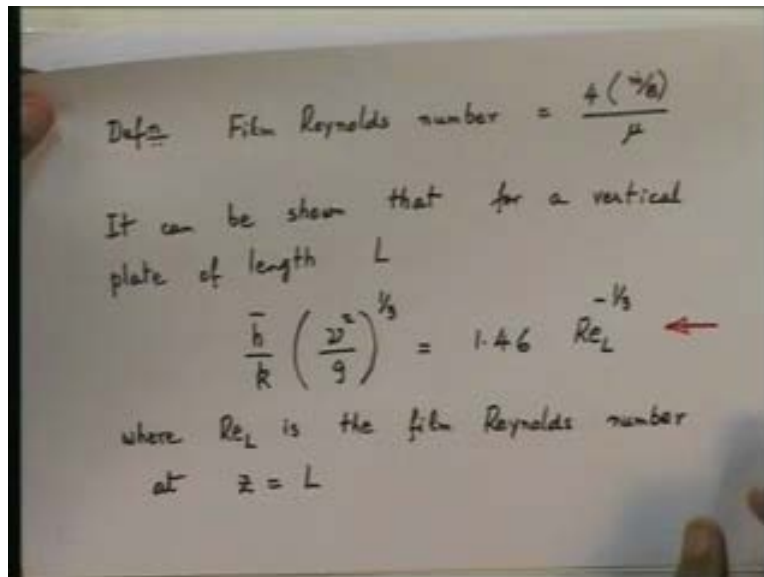 Defn Film Reynolds number = 4(ṁ/B)/μ
It can be shown that for a vertical
plate of length L
h̄/k (ν²/g)^1/3 = 1.46 Re_L^-1/3 ←
where Re_L is the film Reynolds number
at z = L